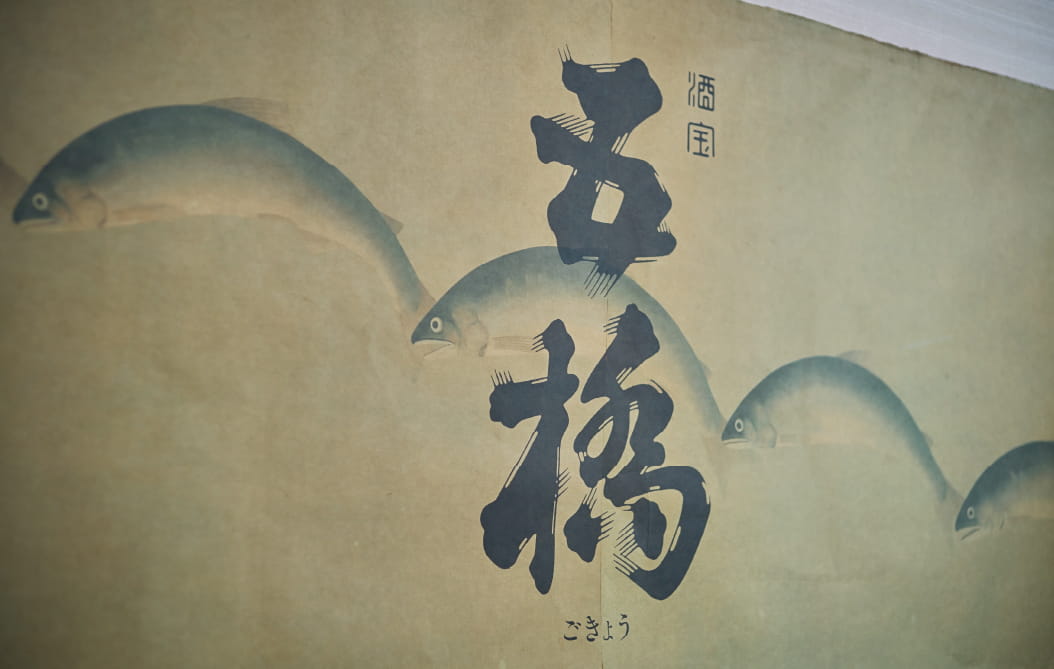 酒宝
五橋
ごきょう